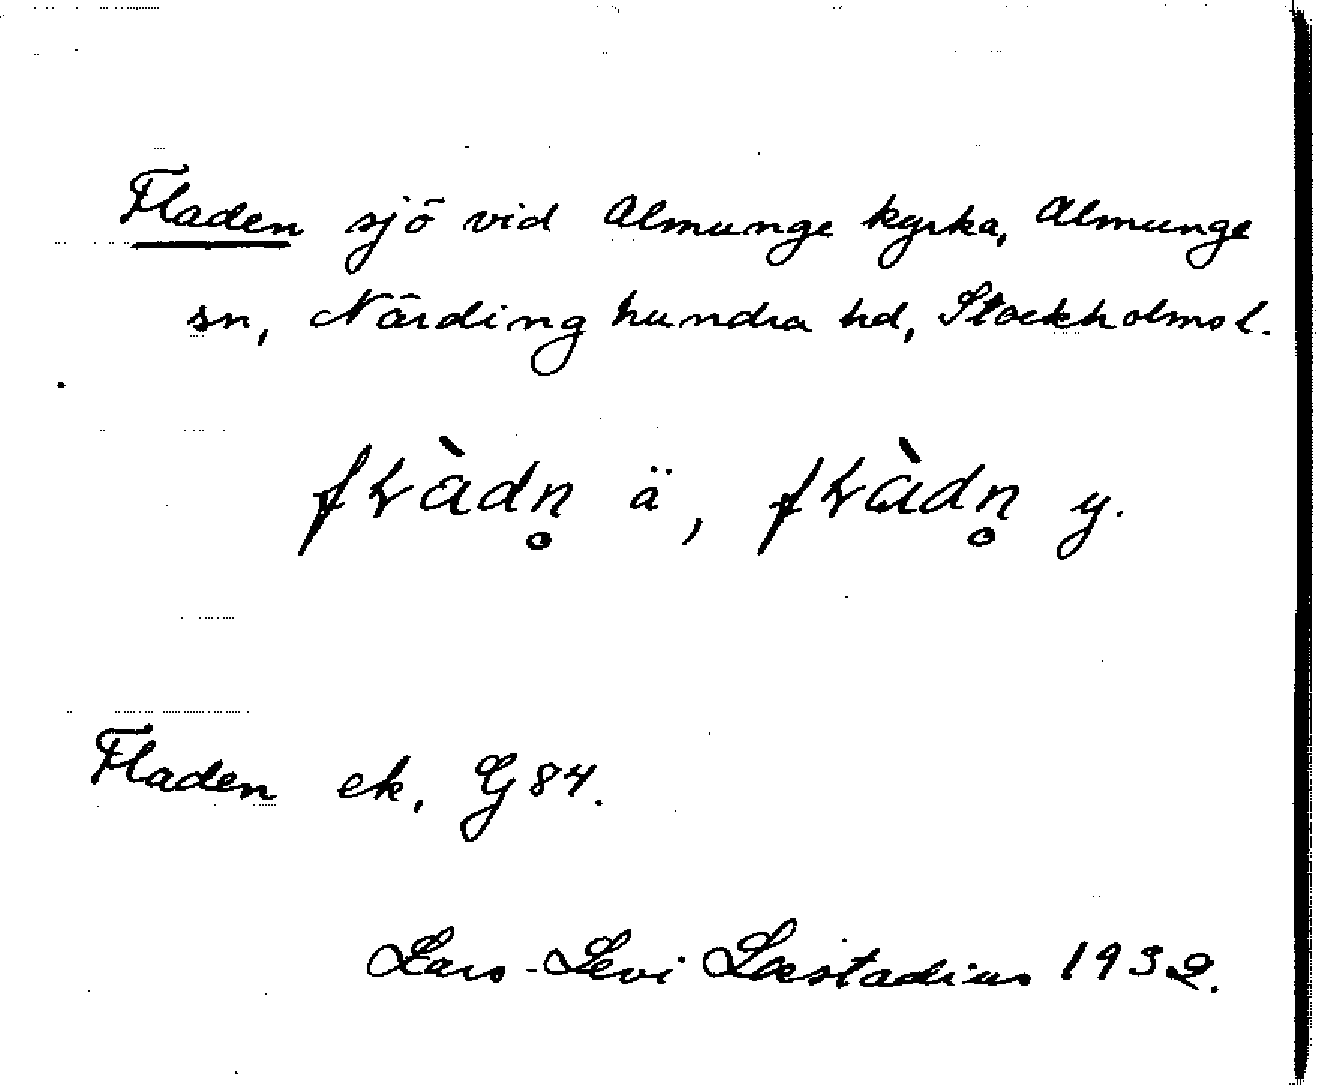 Fladen sjö vid Almunge kyrka, Almunge
sn, Närdinghundra hd, Stockholms l.
fɫàdn̥ ä, fɫàdn̥ y.
Fladen ek. G 84.
Lars-Levi Læstadius 1932.